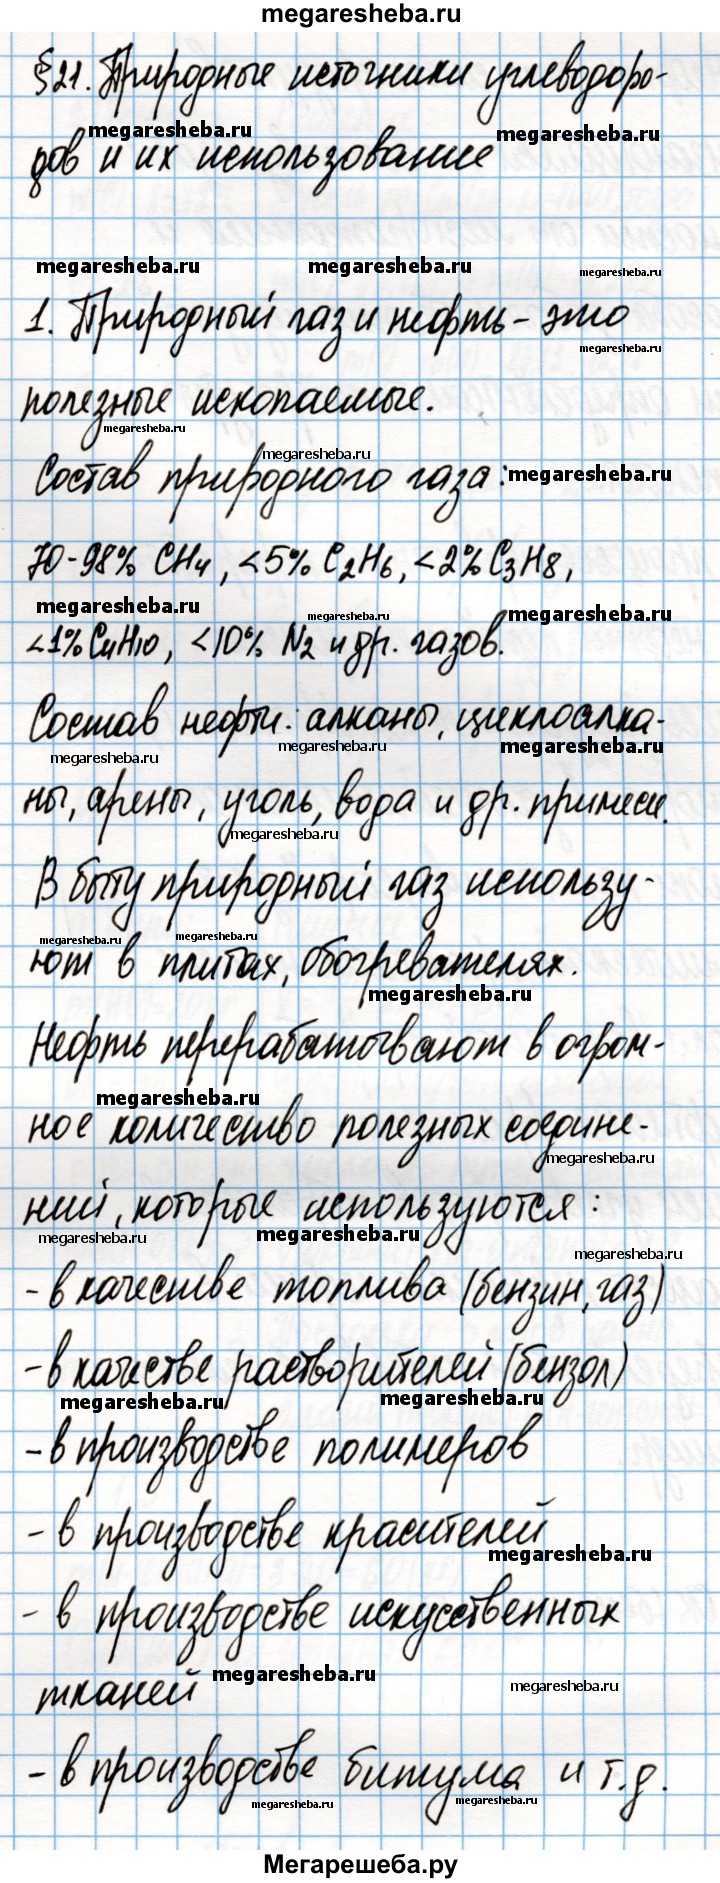 megaresheba.ru
§21. Природные источники углеводоро-
megaresheba.ru megaresheba.ru
дов и их использование
megaresheba.ru megaresheba.ru megaresheba.ru
1. Природный газ и нефть – это
megaresheba.ru
полезные ископаемые.
megaresheba.ru megaresheba.ru
Состав природного газа: megaresheba.ru
70-98% CH4, <5% C2H6, <2% C3H8,
megaresheba.ru megaresheba.ru megaresheba.ru
<1% C4H10, <10% N2 и др. газов.
Состав нефти: алканы, циклоалка-
megaresheba.ru megaresheba.ru megaresheba.ru
ны, арены, уголь, вода и др. примеси.
megaresheba.ru
В быту природный газ использу-
megaresheba.ru megaresheba.ru
ют в плитах, обогревателях.
megaresheba.ru
Нефть перерабатывают в огром-
megaresheba.ru
ное количество полезных соедине-
megaresheba.ru
ний, которые используются:
megaresheba.ru megaresheba.ru megaresheba.ru
- в качестве топлива (бензин, газ)
- в качестве растворителей (бензол)
megaresheba.ru megaresheba.ru
- в производстве полимеров
- в производстве красителей
megaresheba.ru
- в производстве искусственных
тканей megaresheba.ru megaresheba.ru
- в производстве битума и т.д.
megaresheba.ru megaresheba.ru
Мегарешеба.ру